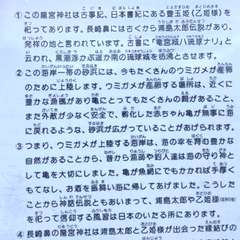 ①この龍宮神社は古事記、日本書紀にある豊玉姫(乙姫様)を
祀ってあります。長崎鼻には古くから浦島太郎伝説があり、
発祥の地と言われています。古書に「竜宮城ハ琉球ナリ」と
云われ、黒潮浮かぶ遥か南の琉球城を彷彿とさせます。
②この海岸一帯の砂浜には、今もたくさんのウミガメが産卵
のために上陸します。ウミガメが産卵する場所は、近くに
豊かな漁場があり亀にとってもたくさんの餌があること、
また外敵が少なく安全で、孵化した赤ちゃん亀が無事に海
に戻れるような、砂浜が広がっていることがあげられます。
③つまり、ウミガメが上陸する海岸は、海の幸を育む豊かな
自然があることから、昔から漁師や釣人達は海の守り神と
して亀を大切にしました。亀が網にでもかかれば手厚くも
てなし、お酒を振舞い海に帰してあげました。こうした
ことから神亀伝説ともあいまって、浦島太郎や乙姫様など
を祀って信仰する風習は日本のいたる所にあります。
④長崎鼻の龍宮神社は浦島太郎と乙姫様が出会った縁結びの